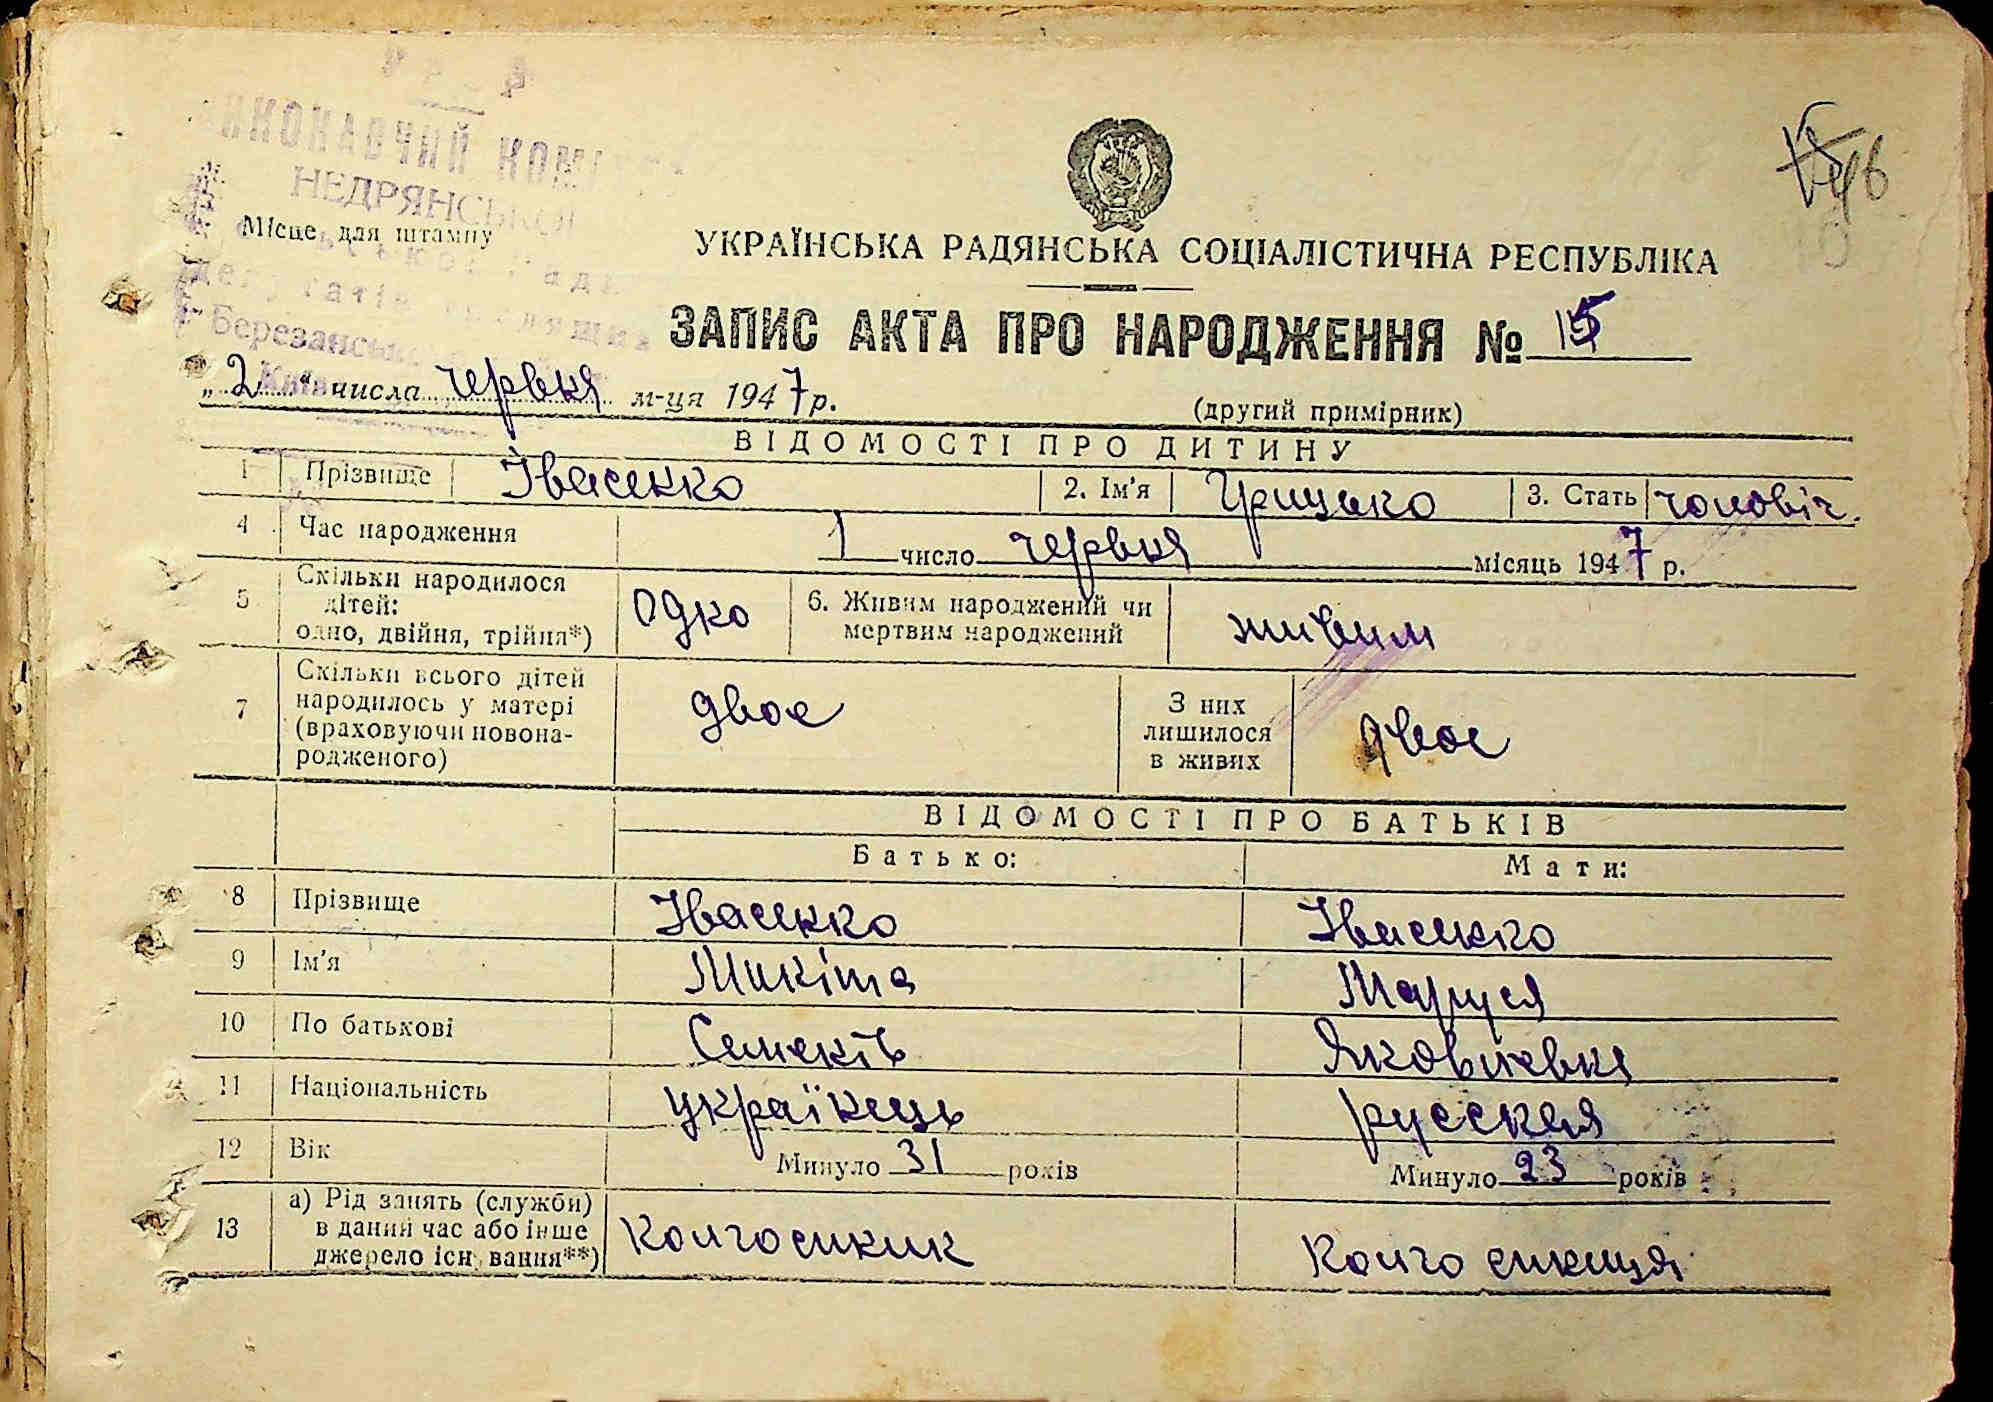 ВИКОНАВЧИЙ КОМІТЕТ
НЕДРЯНСЬКОЇ
Місце для штампу
Березанськ
УКРАЇНСЬКА РАДЯНСЬКА СОЦІАЛІСТИЧНА РЕСПУБЛІКА
ЗАПИС АКТА ПРО НАРОДЖЕННЯ № 15
„2“ числа червня м-ця 1947 р.
(другий примірник)
ВІДОМОСТІ ПРО ДИТИНУ
1 Прізвище Івасенко 2. Ім'я Грицько 3. Стать чоловіч.
4 Час народження 1 число червня місяць 1947 р.
5 Скільки народилося дітей: одно, двійня, трійня*) одно 6. Живим народжений чи мертвим народжений живим
7 Скільки всього дітей народилось у матері (враховуючи новонародженого) двоє З них лишилося в живих двоє
ВІДОМОСТІ ПРО БАТЬКІВ
Батько: Мати:
8 Прізвище Івасенко Івасенко
9 Ім'я Микіта Маруся
10 По батькові Семенів Яковлевна
11 Національність українець русская
12 Вік Минуло 31 років Минуло 23 років
13 а) Рід занять (служби) в даний час або інше джерело існування**) Колгоспник Колгоспниця